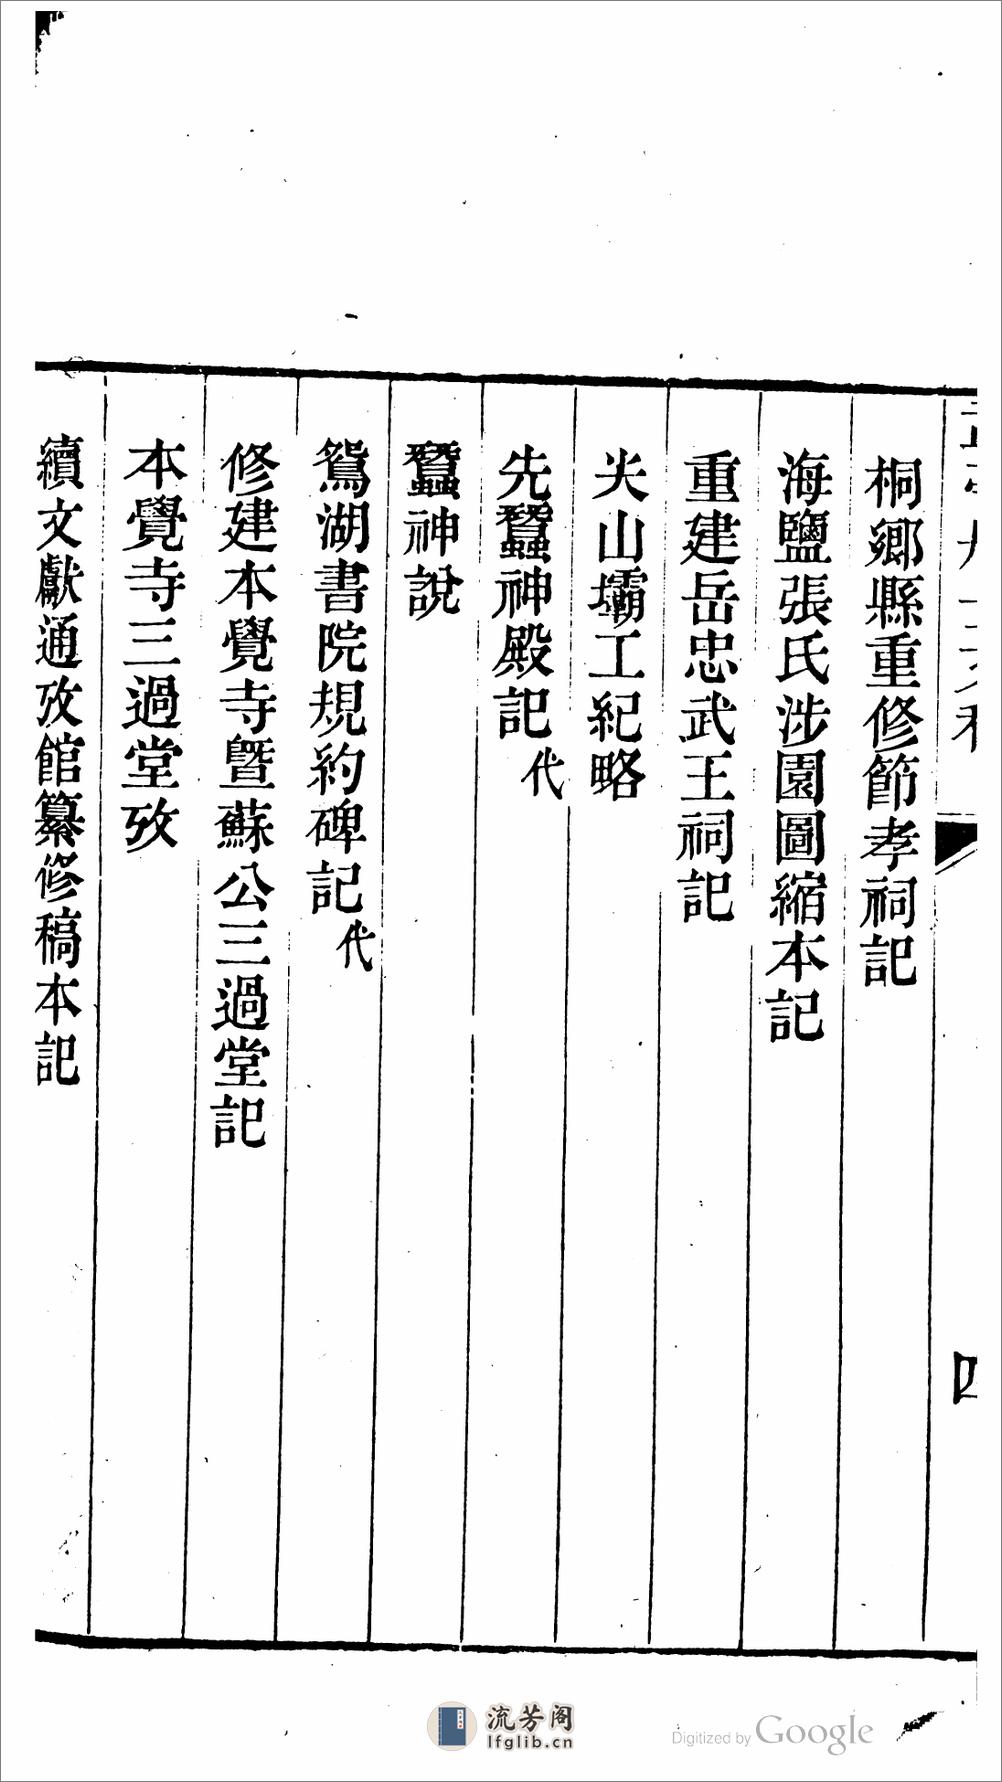 桐鄉縣重修節孝祠記
海鹽張氏涉園圖縮本記
重建岳忠武王祠記
尖山壩工紀略
先蠶神殿記代
蠶神說
鴛湖書院規約碑記代
修建本覺寺暨蘇公三過堂記
本覺寺三過堂攷
續文獻通攷館纂修稿本記
四
流芳阁
lfglib.cn
Digitized by Google